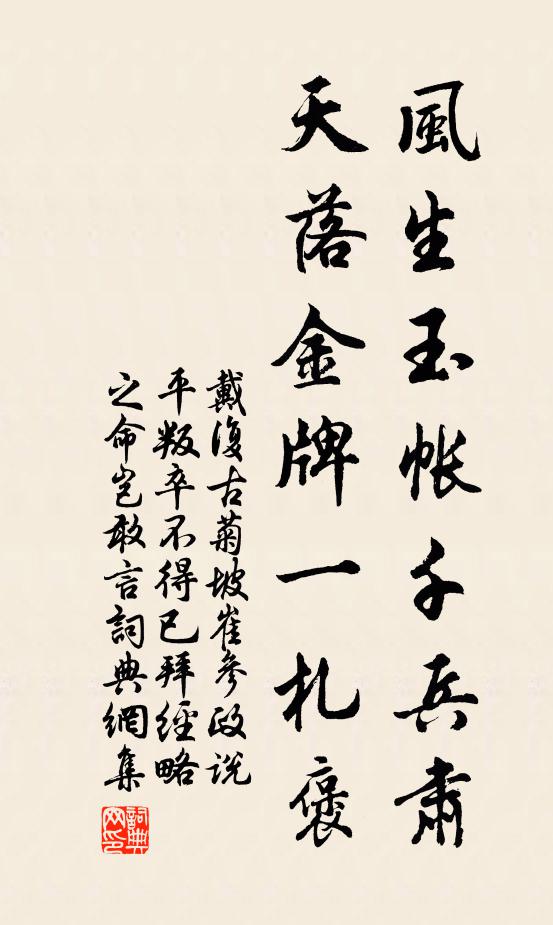 風生玉帳千兵肅
天落金牌一札褒
戴復古菊坡崔參政說
平叛卒不得已拜經略
之命豈敢言詞典網集
詞典
网印